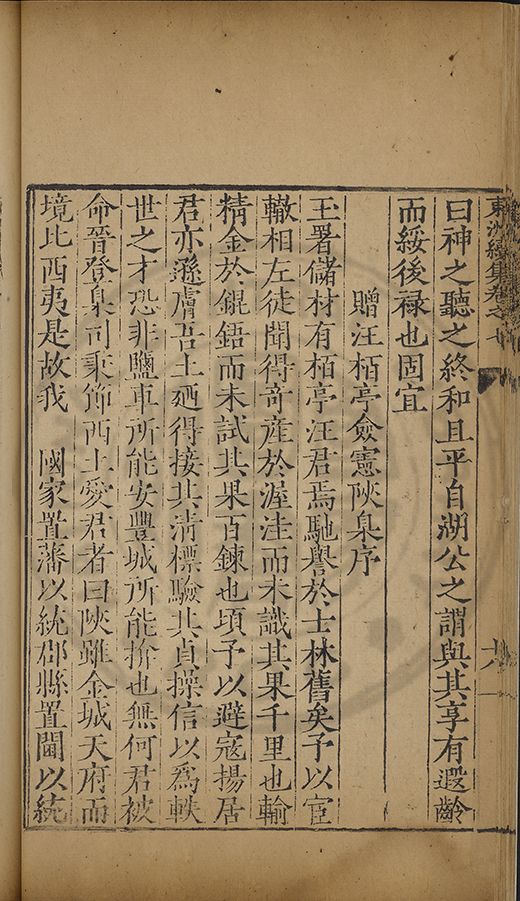 東洲續集卷之七
十八
曰神之聽之終和且平自湖公之謂與其享有遐齡
而綏後祿也固宜
贈汪栢亭僉憲陜臬序
王署儲材有栢亭汪君焉馳譽於士林舊矣予以宦
轍相左徒聞得奇產於渥洼而未識其果千里也輸
精金於錕鋙而未試其果百鍊也頃予以避寇揚居
君亦遜膚吾土廼得接其清標驗其貞操信以爲軼
世之才恐非鹽車所能安豐城所能揜也無何君被
命晉登臬司秉節西土愛君者曰陜雖金城天府而
境比西夷是故我 國家置藩以統郡縣置閫以統